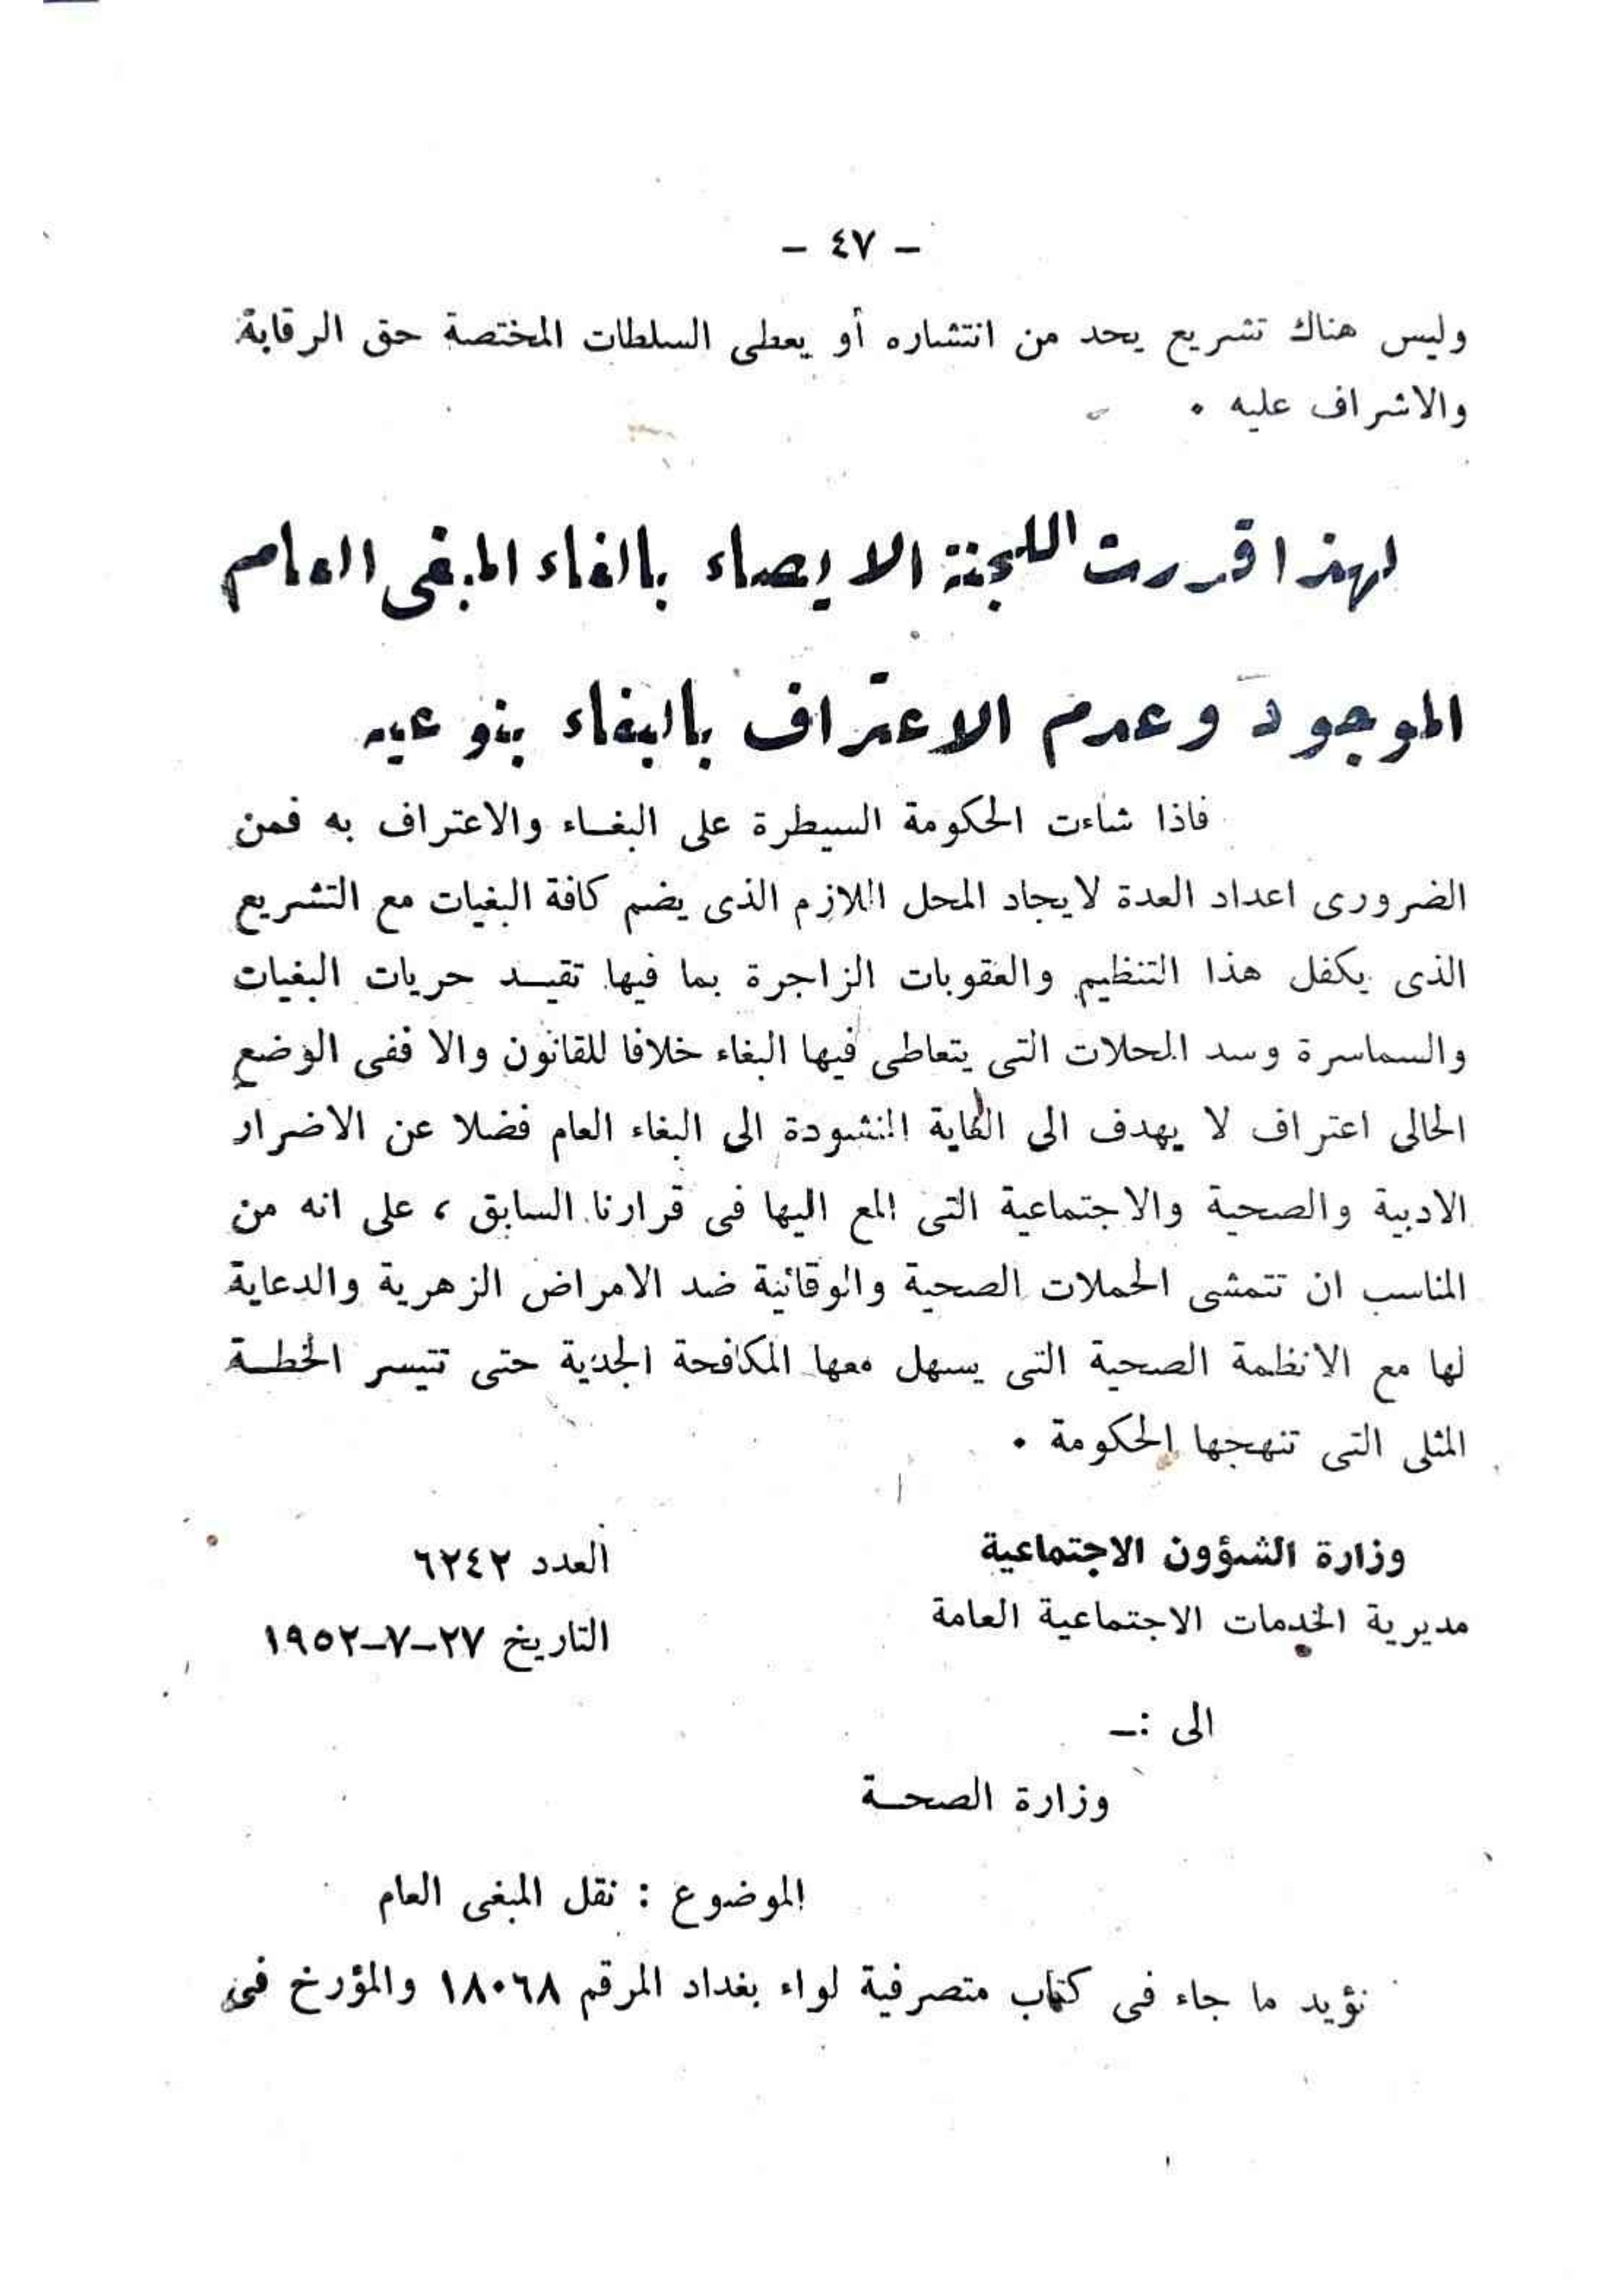 - ٤٧ -
وليس هناك تشريع يحد من انتشاره أو يعطى السلطات المختصة حق الرقابة
والاشراف عليه ٠
لهذا قررت اللجنة الايصاء بالغاء المبغى العام
الموجود وعدم الاعتراف بالبغاء بنوعيه
فاذا شاءت الحكومة السيطرة على البغـاء والاعتراف به فمن
الضرورى اعداد العدة لايجاد المحل اللازم الذى يضم كافة البغيات مع التشريع
الذى يكفل هذا التنظيم والعقوبات الزاجرة بما فيها تقيـد حريات البغيات
والسماسرة وسد المحلات التى يتعاطى فيها البغاء خلافا للقانون والا ففى الوضع
الحالى اعتراف لا يهدف الى الغاية المنشودة الى البغاء العام فضلا عن الاضرار
الادبية والصحية والاجتماعية التى المع اليها فى قرارنا السابق ، على انه من
المناسب ان تتمشى الحملات الصحية والوقائية ضد الامراض الزهرية والدعاية
لها مع الانظمة الصحية التى يسهل معها المكافحة الجدية حتى تتيسر الخطـة
المثلى التى تنهجها الحكومة ٠
وزارة الشؤون الاجتماعية العدد ٦٢٤٢
مديرية الخدمات الاجتماعية العامة التاريخ ٢٧-٧-١٩٥٢
الى :-
وزارة الصحـة
الموضوع : نقل المبغى العام
نؤيد ما جاء فى كتاب متصرفية لواء بغداد المرقم ١٨٠٦٨ والمؤرخ فى